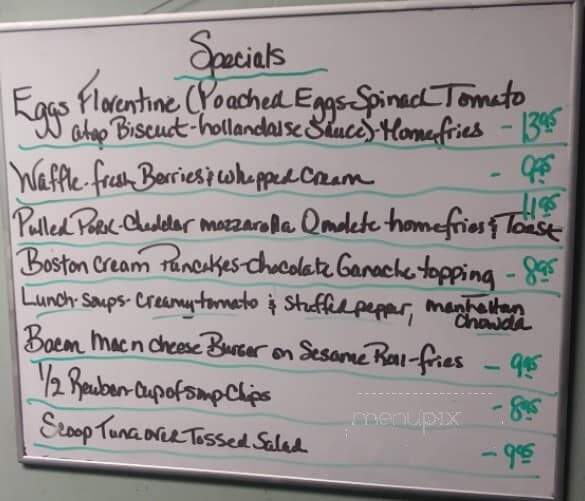 Specials
Eggs Florentine (Poached Eggs-Spinach Tomato
atop Biscuit-hollandaise Sauce)-Homefries - 13.95
Waffle-fresh Berries & whipped Cream - 9.95
Pulled Pork-Cheddar mozzarolla Omolete homefries & Toast 11.95
Boston Cream Pancakes-Chocolate Ganache-topping - 8.95
Lunch-Soups-Creamy tomato & Stuffed pepper, manhattan
Chowda
Bacon Mac n cheese Burger on Sesame Roll-fries - 9.95
1/2 Reuben-Cup of soup Chips - 8.95
Scoop Tuna over Tossed Salad - 9.95
menupix